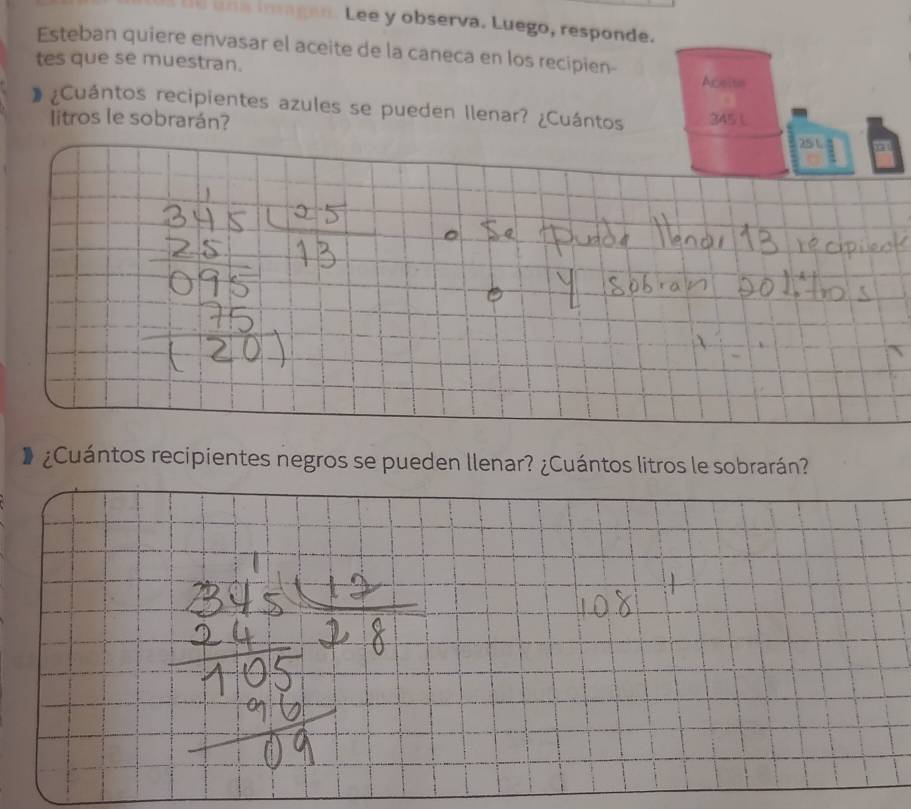 Lee y observa. Luego, responde.
Esteban quiere envasar el aceite de la caneca en los recipien-
tes que se muestran.
Aceite
345 L
25 L
¿Cuántos recipientes azules se pueden llenar? ¿Cuántos
litros le sobrarán?
1
345 25
25 13
095
75
(20)
• Se puede llenar 13
• y sobran 20 litros
¿Cuántos recipientes negros se pueden llenar? ¿Cuántos litros le sobrarán?
1
345 12
24 28
105
96
09
108
1